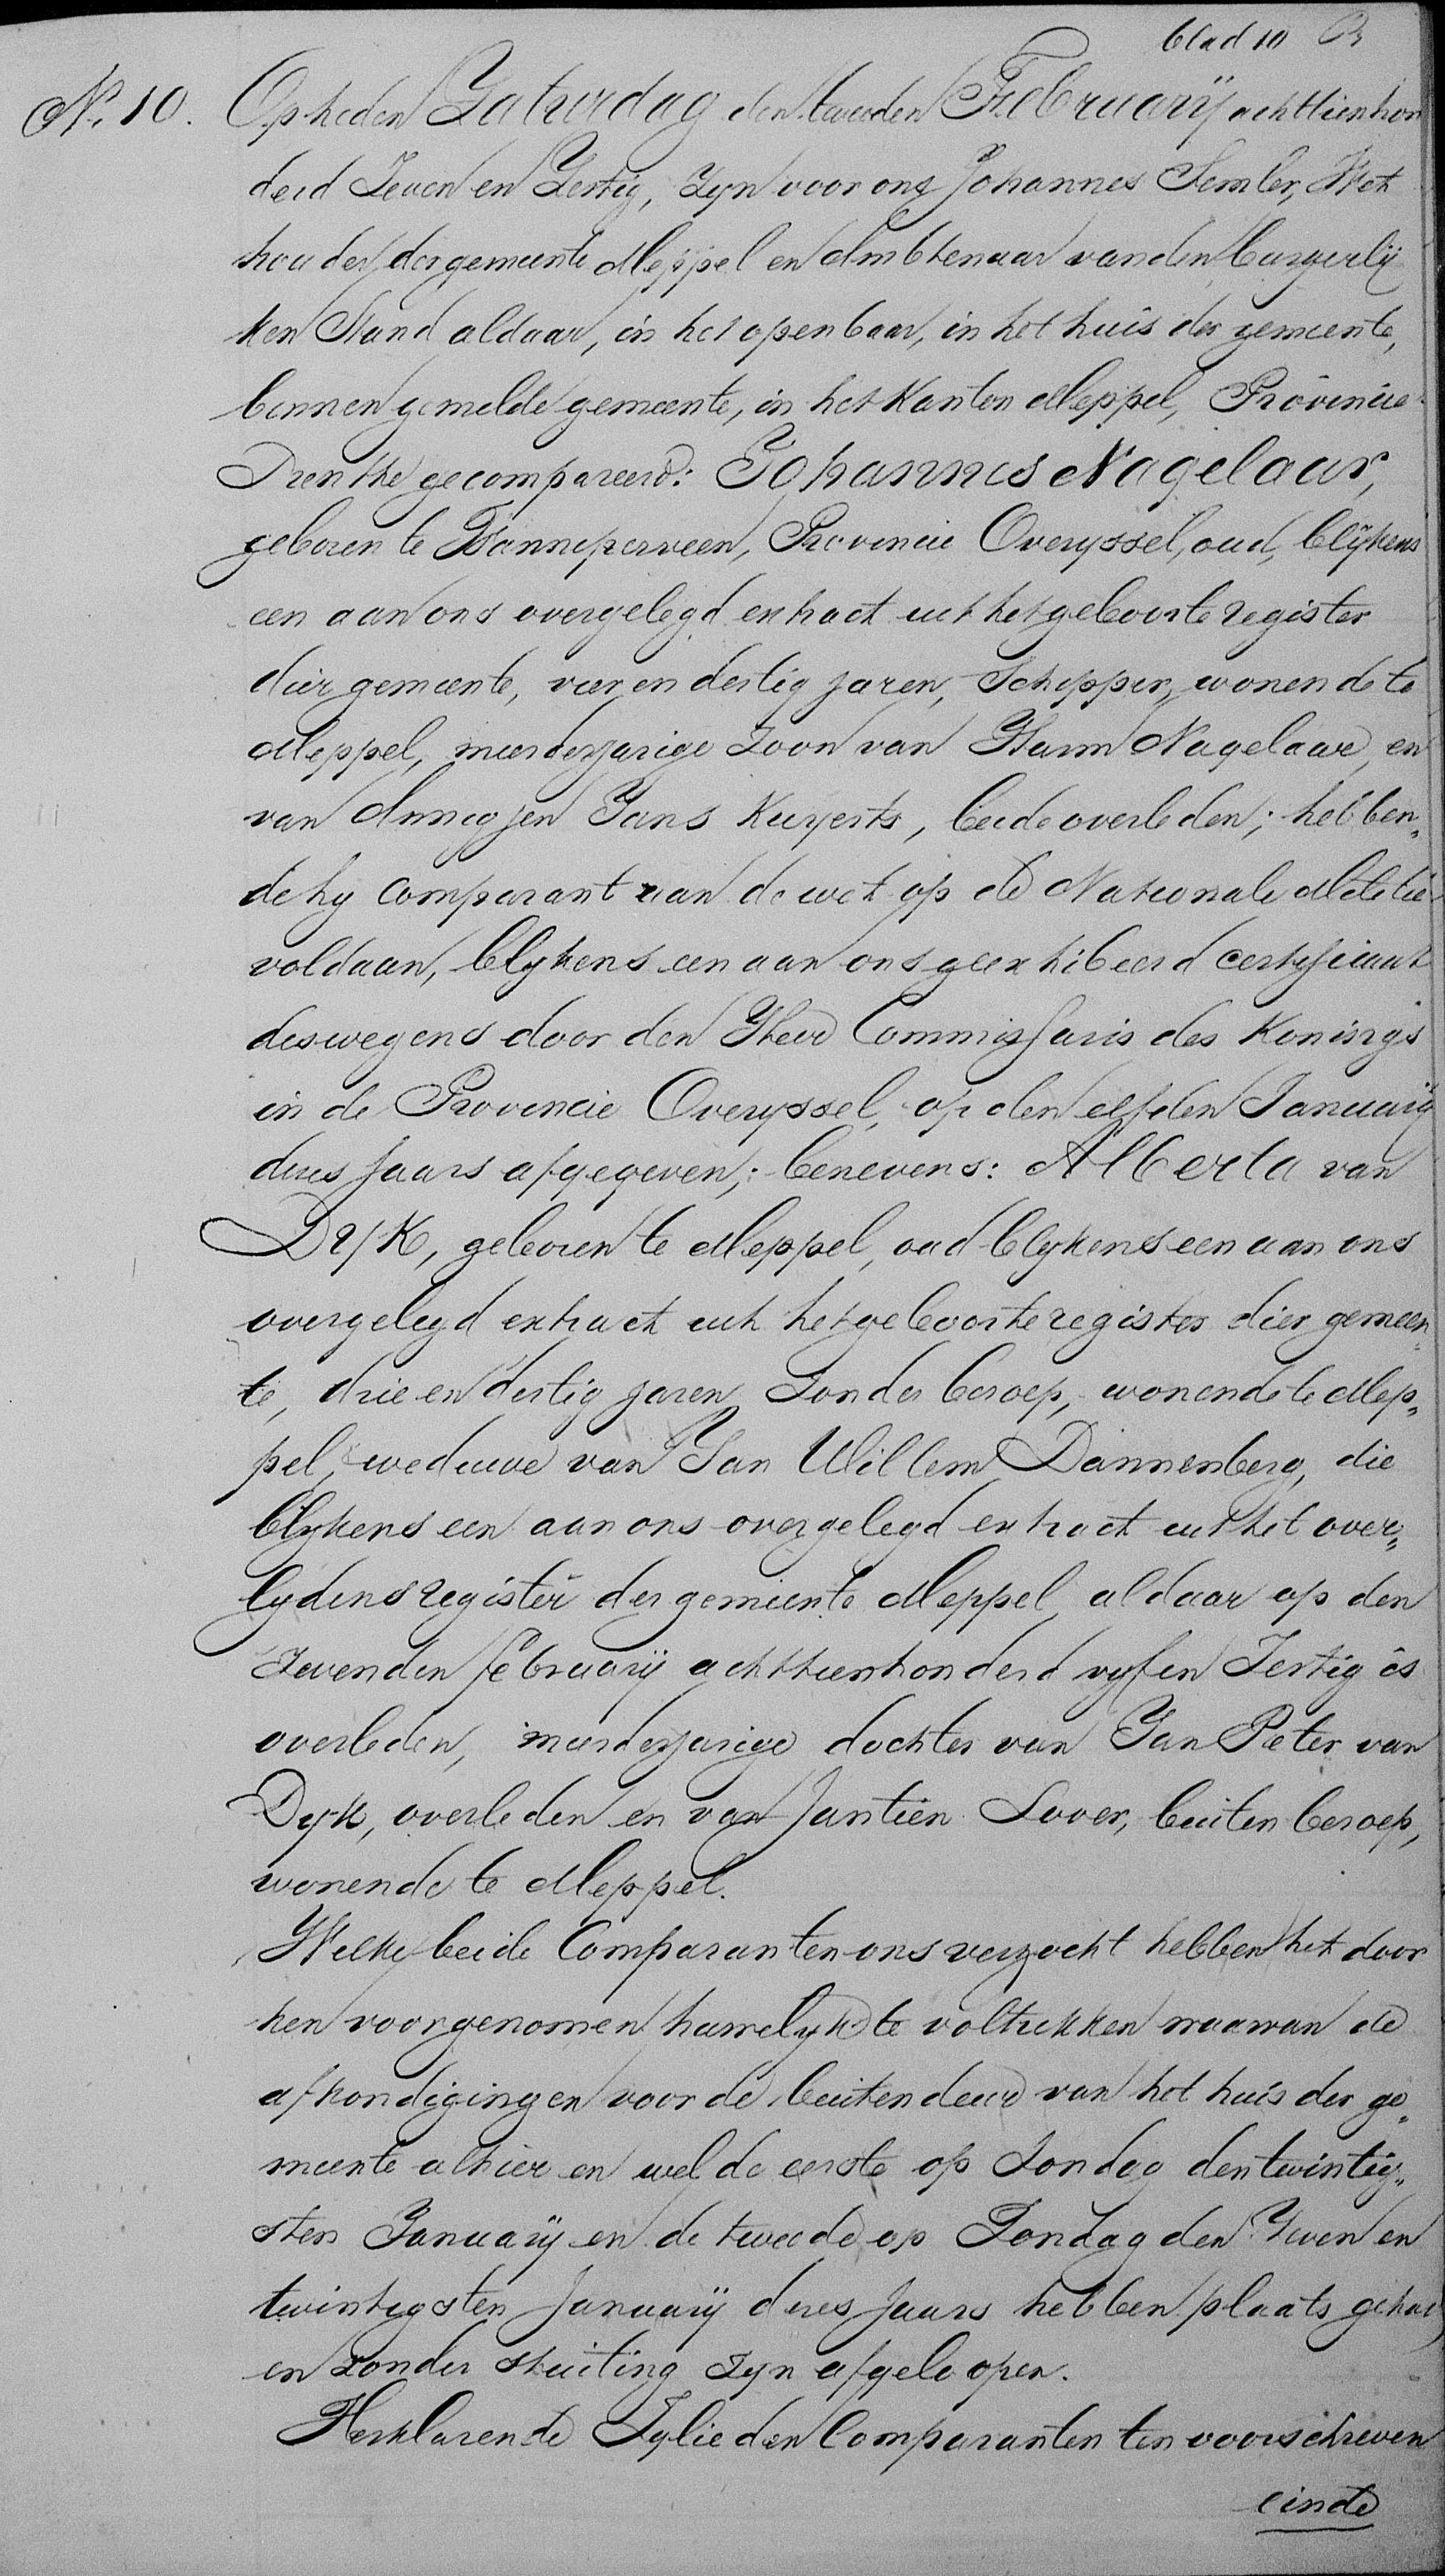 blad 10
No. 10. Op heden Zaturdag den tweeden February achttienhon
derd Zeven en Zestig, Zyn voor ons Johannes Semler, Wet
houder der gemeente Meppel en Ambtenaar van den burgerlij
ken Stand aldaar, in het openbaar, in het huis der gemeente,
binnen gemelde gemeente, in het Kanton Meppel, Provincie
Drenthe gecompareerd: Johannes Nagelaar,
geboren te Wanneperveen, Provincie Overyssel, oud, blijkens
een aan ons overgelegd extract uit het geboorteregister
dier gemeente, vier en dertig jaren, Schipper, wonende te
Meppel, meerderjarige Zoon van Harm Nagelaar, en
van Annigjen Jans Kuyerts, beide overleden; hebben„
de hy comparant aan de wet op de Nationale Militie
voldaan, blykens een aan ons geexhibeerd certificaat
deswegens door den Heer Commissaris des Konings
in de Provincie Overyssel, op den elfden January
dezes Jaars afgegeven; benevens: Alberta van
Dyk, geboren te Meppel, oud blykens een aan ons
overgelegd extract uit het geboorteregister dier gemeen„
te, drie en dertig jaren, Zonder beroep, wonende te Mep„
pel, weduwe van Jan Willem Dannenberg, die
blykens een aan ons overgelegd extract uit het over„
lydens register der gemeente Meppel aldaar op den
Zevenden february achttienhonderd vyf en Zestig is
overleden, meerderjarige dochter van Jan Peter van
Dyk, overleden en van Jantien Sover, buiten beroep,
wonende te Meppel.
Welke beide Comparanten ons verzocht hebben het door
hen voorgenomen huwelyk te voltrekken waarvan de
afkondigingen voor de buitendeur van het huis der ge„
meente alhier en wel de eerste op Zondag den twintig„
sten January en de tweede op Zondag den Zeven en
twintigsten January dezes Jaars hebben plaats gehad
en zonder stuiting zyn afgeloopen.
Verklarende Zylieden Comparanten ten voorschreven
einde